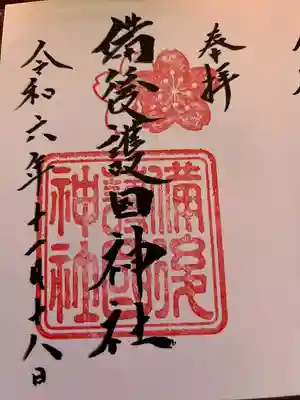 奉拝
備後護国神社
令和六年十一月十八日
備後
護国
神社